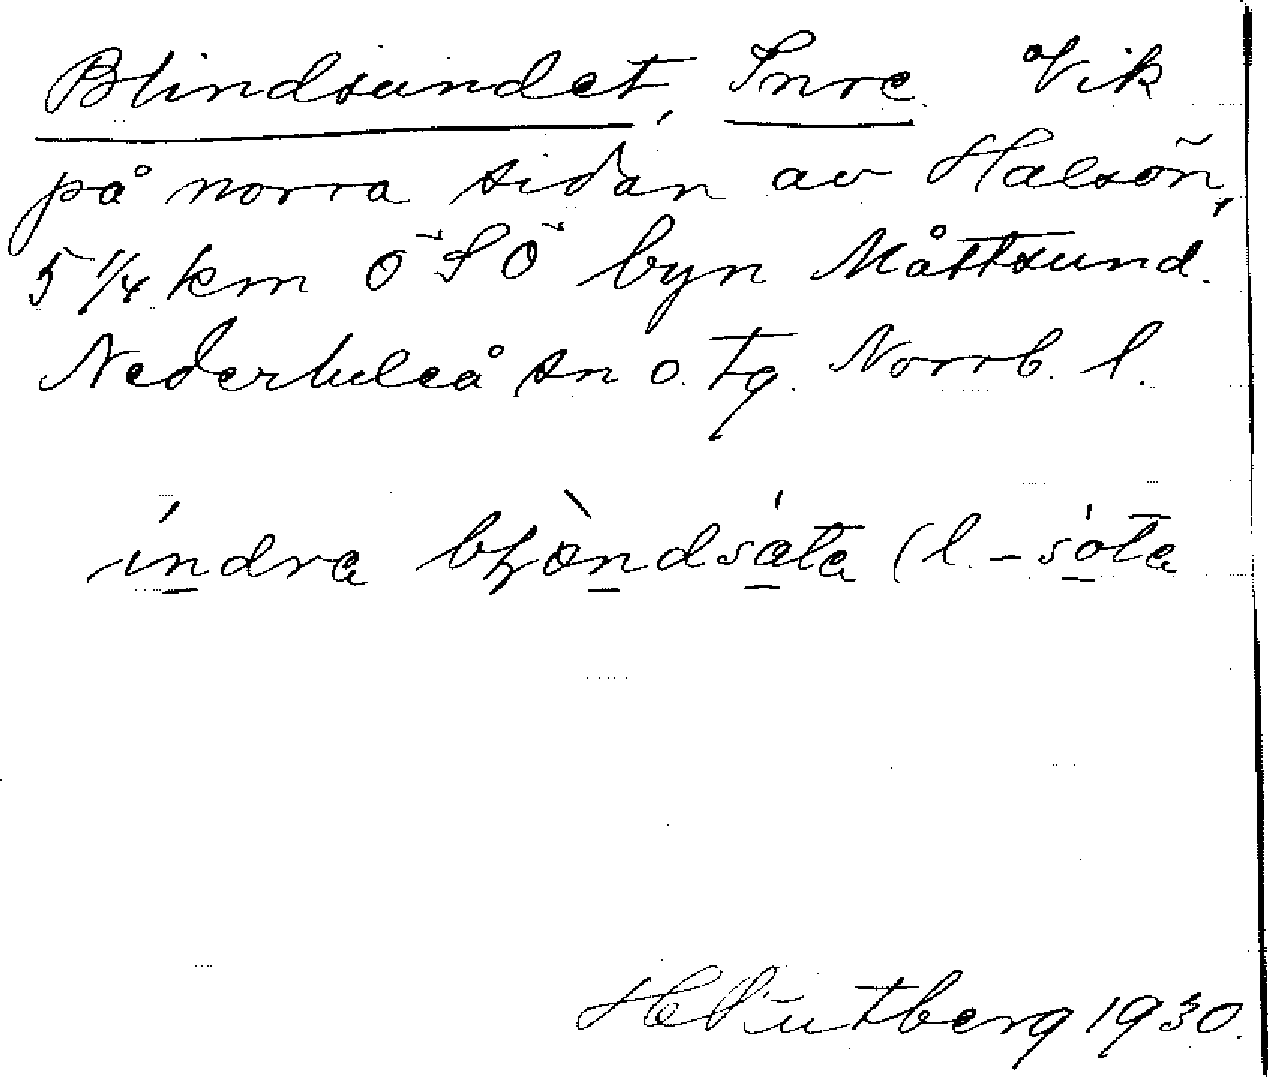 Blindsundet, Inre Vik
på norra sidan av Halsön,
5 1/4 km ÖSÖ byn Måttsund.
Nederluleå sn o. tg. Norrb. l.
indra
H Rutberg 1930.